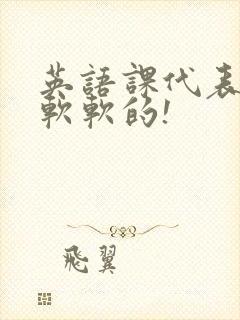 英語課代表
軟軟的!
飛翼